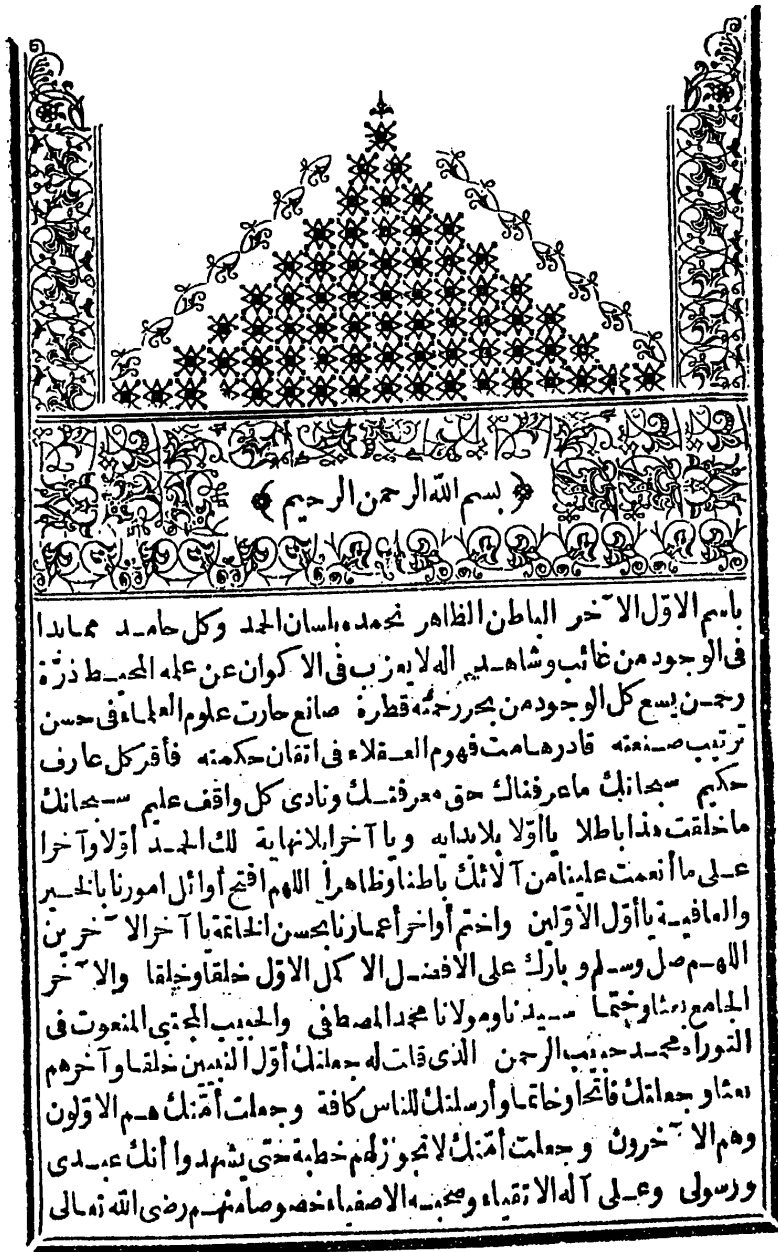 ﴿ بسم الله الرحمن الرحيم ﴾
باسم الاوّل الآخر الباطن الظاهر نحمده بلسان الحمد وكل حامد مما بدا
فى الوجود من غائب وشاهد اله لا يعزب فى الاكوان عن علمه المحيط ذرّة
رحمن يسع كل الوجود من بحر رحمته قطرة صانع حارت علوم العلماء فى حسن
ترتيب صنعته قادر هامت فهوم العقلاء فى اتقان حكمته فأقر كل عارف
حكيم سبحانك ما عرفناك حق معرفتك ونادى كل واقف عليم سبحانك
ما خلقت هذا باطلا يا أوّلا بلا بداية ويا آخرا بلا نهاية لك الحمد أوّلا وآخرا
على ما أنعمت علينا من آلائك باطنا وظاهرا اللهم افتح أوائل امورنا بالخير
والعافية يا أوّل الاوّلين واختم أواخر أعمارنا بحسن الخاتمة يا آخر الآخرين
اللهم صل وسلم وبارك على الافضل الاكمل الاوّل خلقا وخلقا والآخر
الجامع بعثا وختما سيدنا ومولانا محمد المصطفى والحبيب المجتبى المنعوت فى
التوراة محمد حبيب الرحمن الذى قلت له جعلتك أوّل النبيين خلقا وآخرهم
بعثا وجعلتك فاتحا وخاتما وأرسلتك للناس كافة وجعلت أمّتك هم الاوّلون
وهم الآخرون وجعلت أمّتك لا تجوز لهم خطبة حتى يشهدوا أنك عبدى
ورسولى وعلى آله الاتقياء وصحبه الاصفياء خصوصا منهم رضى الله تعالى